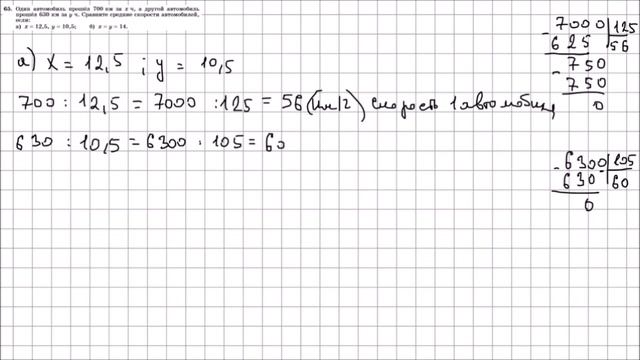 65. Один автомобиль прошёл 700 км за x ч, а другой автомобиль
прошёл 630 км за y ч. Сравните средние скорости автомобилей,
если:
а) x = 12,5, y = 10,5; б) x = y = 14.
а) x = 12,5 ; y = 10,5
700 : 12,5 = 7000 : 125 = 56 (км/ч) скорость 1 автомобиля
630 : 10,5 = 6300 : 105 = 60
- 7000 | 125
625 | 56
- 750
750
0
- 6300 | 105
630 | 60
0